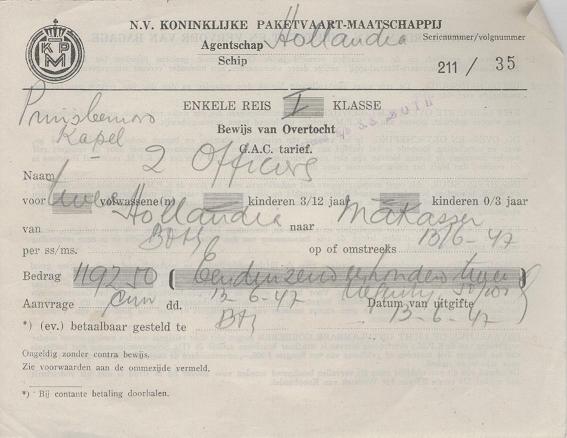 N.V. KONINKLIJKE PAKETVAART-MAATSCHAPPIJ
KPM
Agentschap Hollandia
Serienummer/volgnummer
Schip
211 / 35
ENKELE REIS I KLASSE
Kapel
Bewijs van Overtocht
G.A.C. tarief.
Naam 2 Officiers
voor twee volwassene(n) kinderen 3/12 jaar kinderen 0/3 jaar
van Hollandia naar Makasser
per ss/ms. op of omstreeks 13/6-47
Bedrag 1192 50
Aanvrage dd. 12-6-47 Datum van uitgifte
*) (ev.) betaalbaar gesteld te 13-6-47
Ongeldig zonder contra bewijs.
Zie voorwaarden aan de ommezijde vermeld.
*) Bij contante betaling doorhalen.